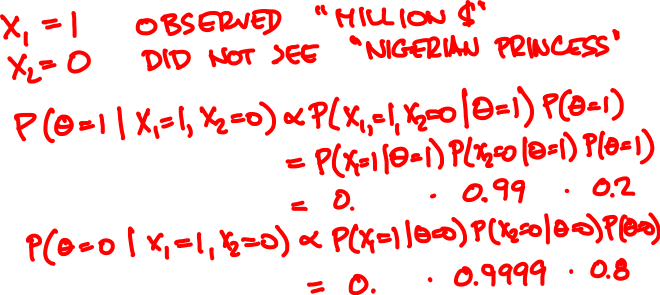 X₁ = 1 OBSERVED "MILLION $"
X₂ = 0 DID NOT SEE "NIGERIAN PRINCESS"
P(θ=1 | X₁=1, X₂=0) ∝ P(X₁=1, X₂=0 | θ=1) P(θ=1)
= P(X₁=1 | θ=1) P(X₂=0 | θ=1) P(θ=1)
= 0. · 0.99 · 0.2
P(θ=0 | X₁=1, X₂=0) ∝ P(X₁=1 | θ=0) P(X₂=0 | θ=0) P(θ=0)
= 0. · 0.9999 · 0.8